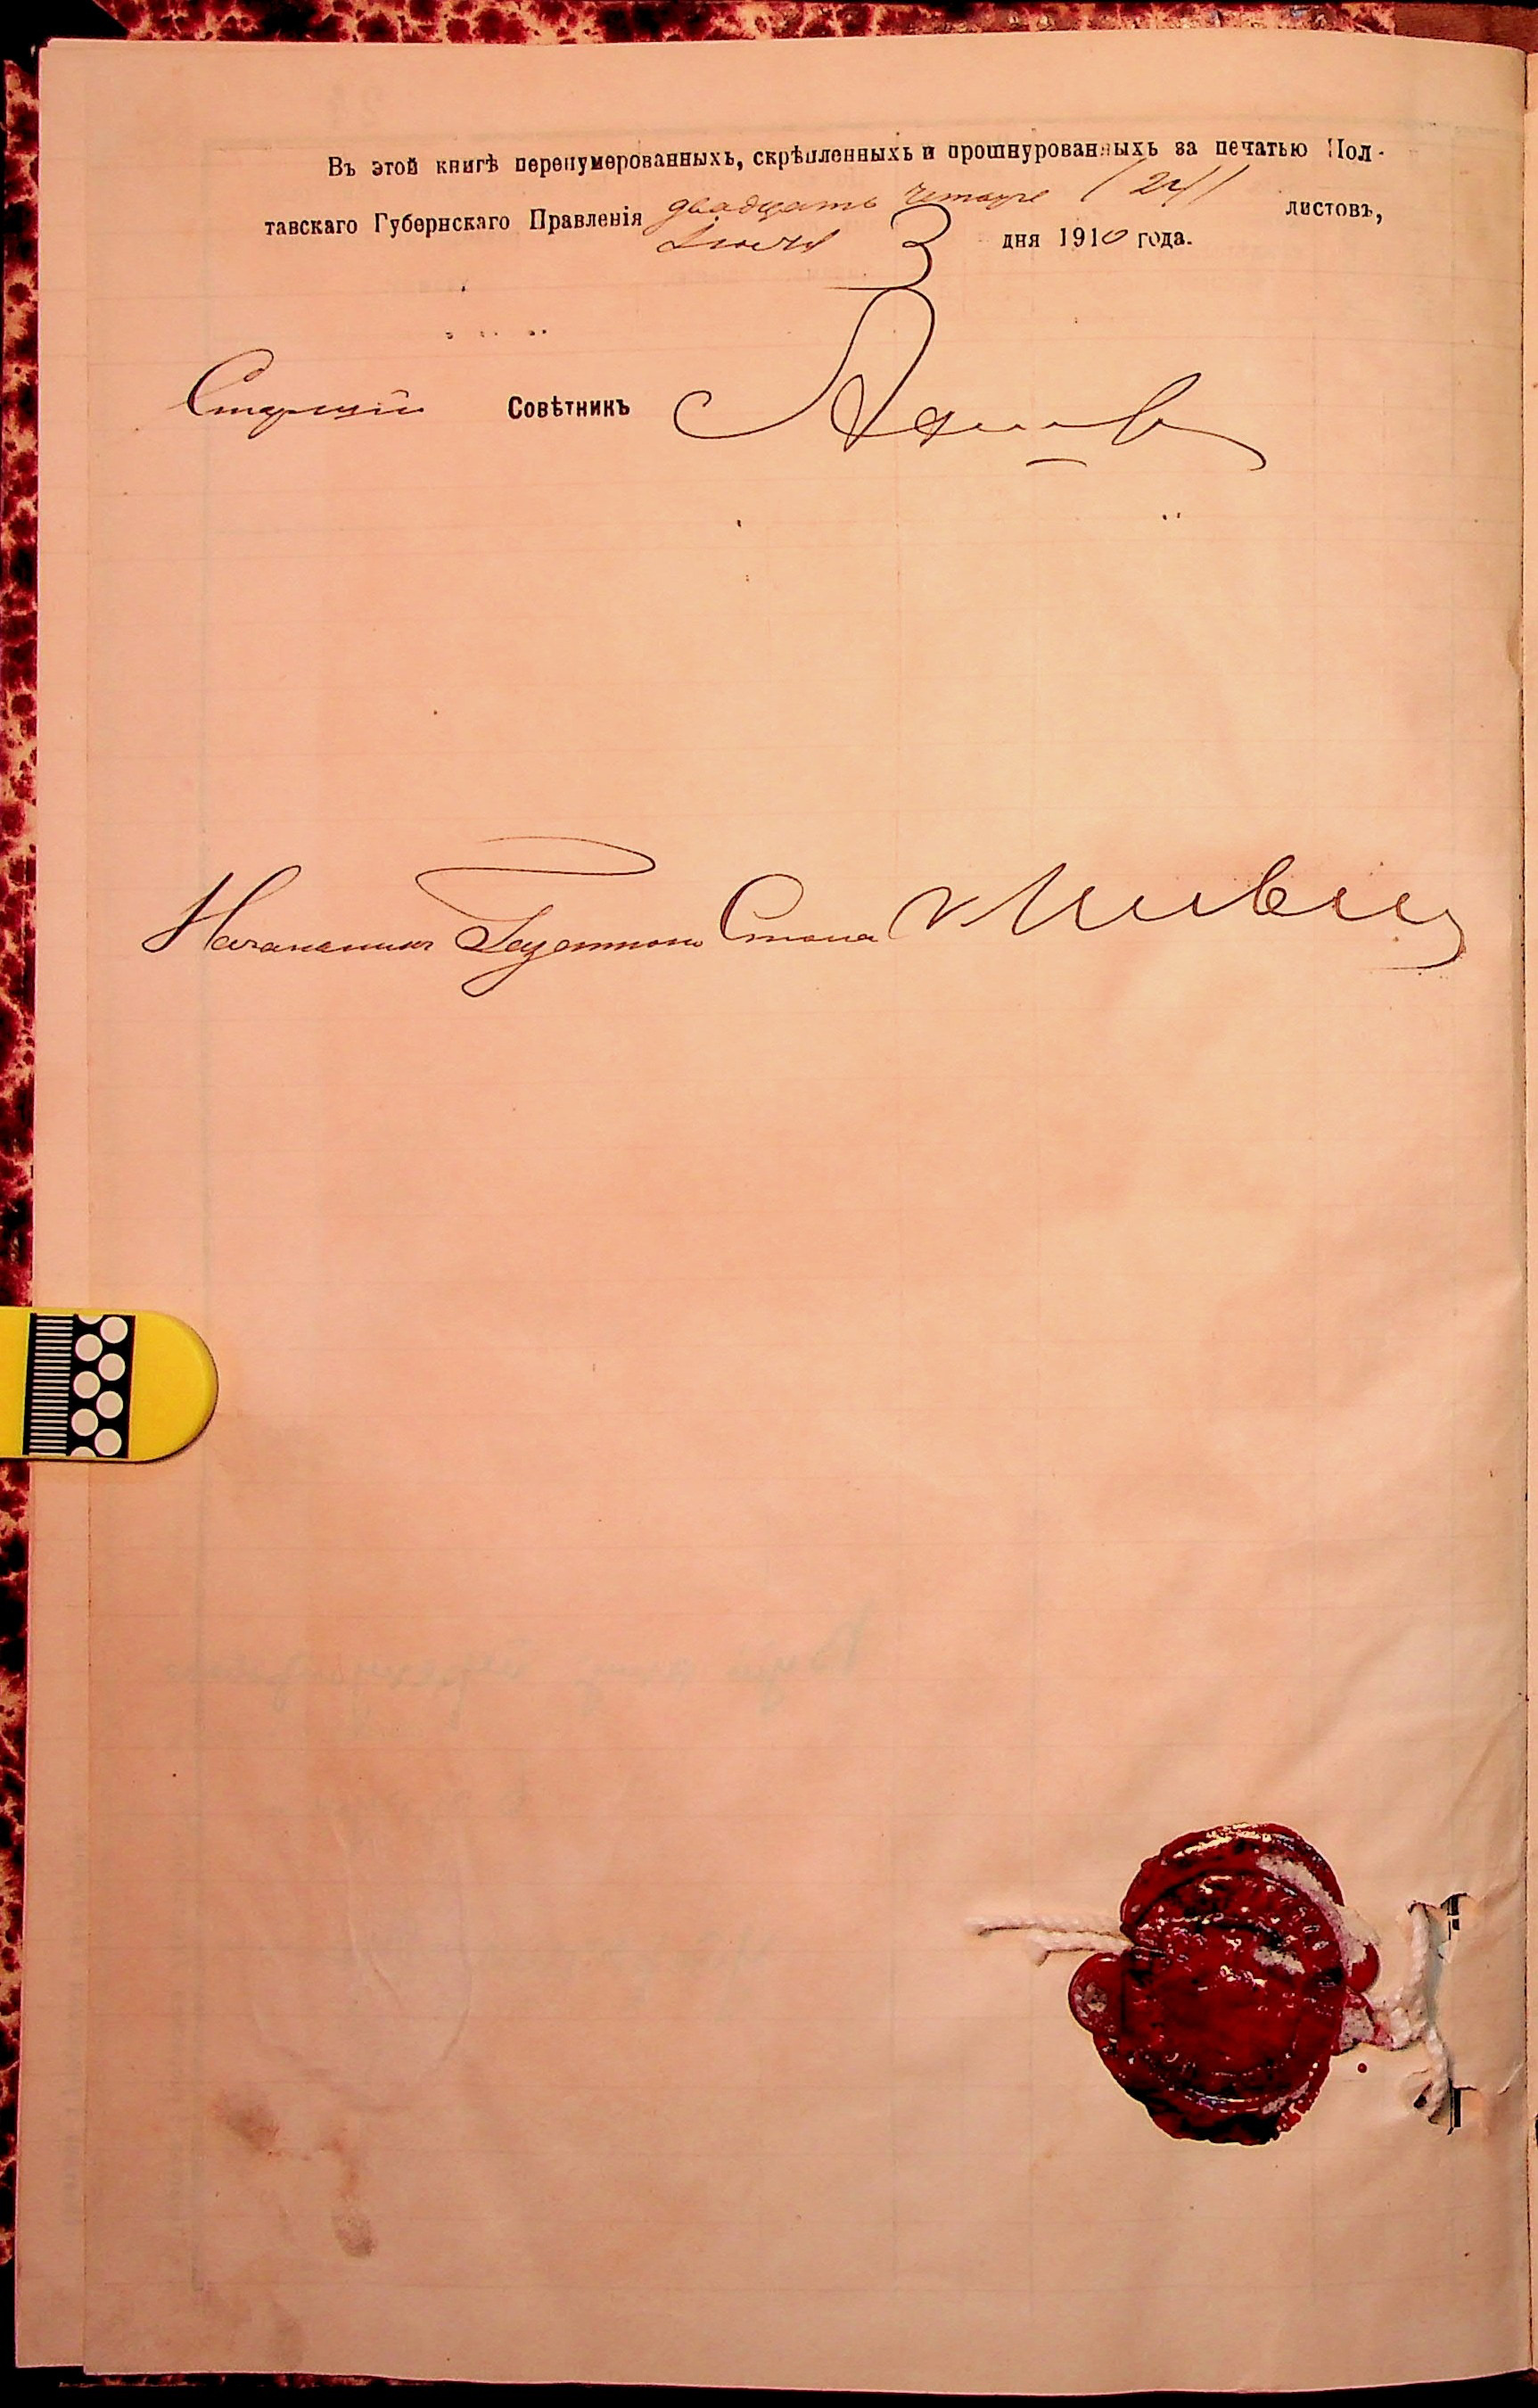 Въ этой книгѣ перенумерованныхъ, скрѣпленныхъ и прошнурованныхъ за печатью Пол-
тавскаго Губернскаго Правленія двадцать четыре (24) листовъ,
3 дня 1910 года.
Старшій Совѣтникъ
Начальникъ Газетнаго Стола